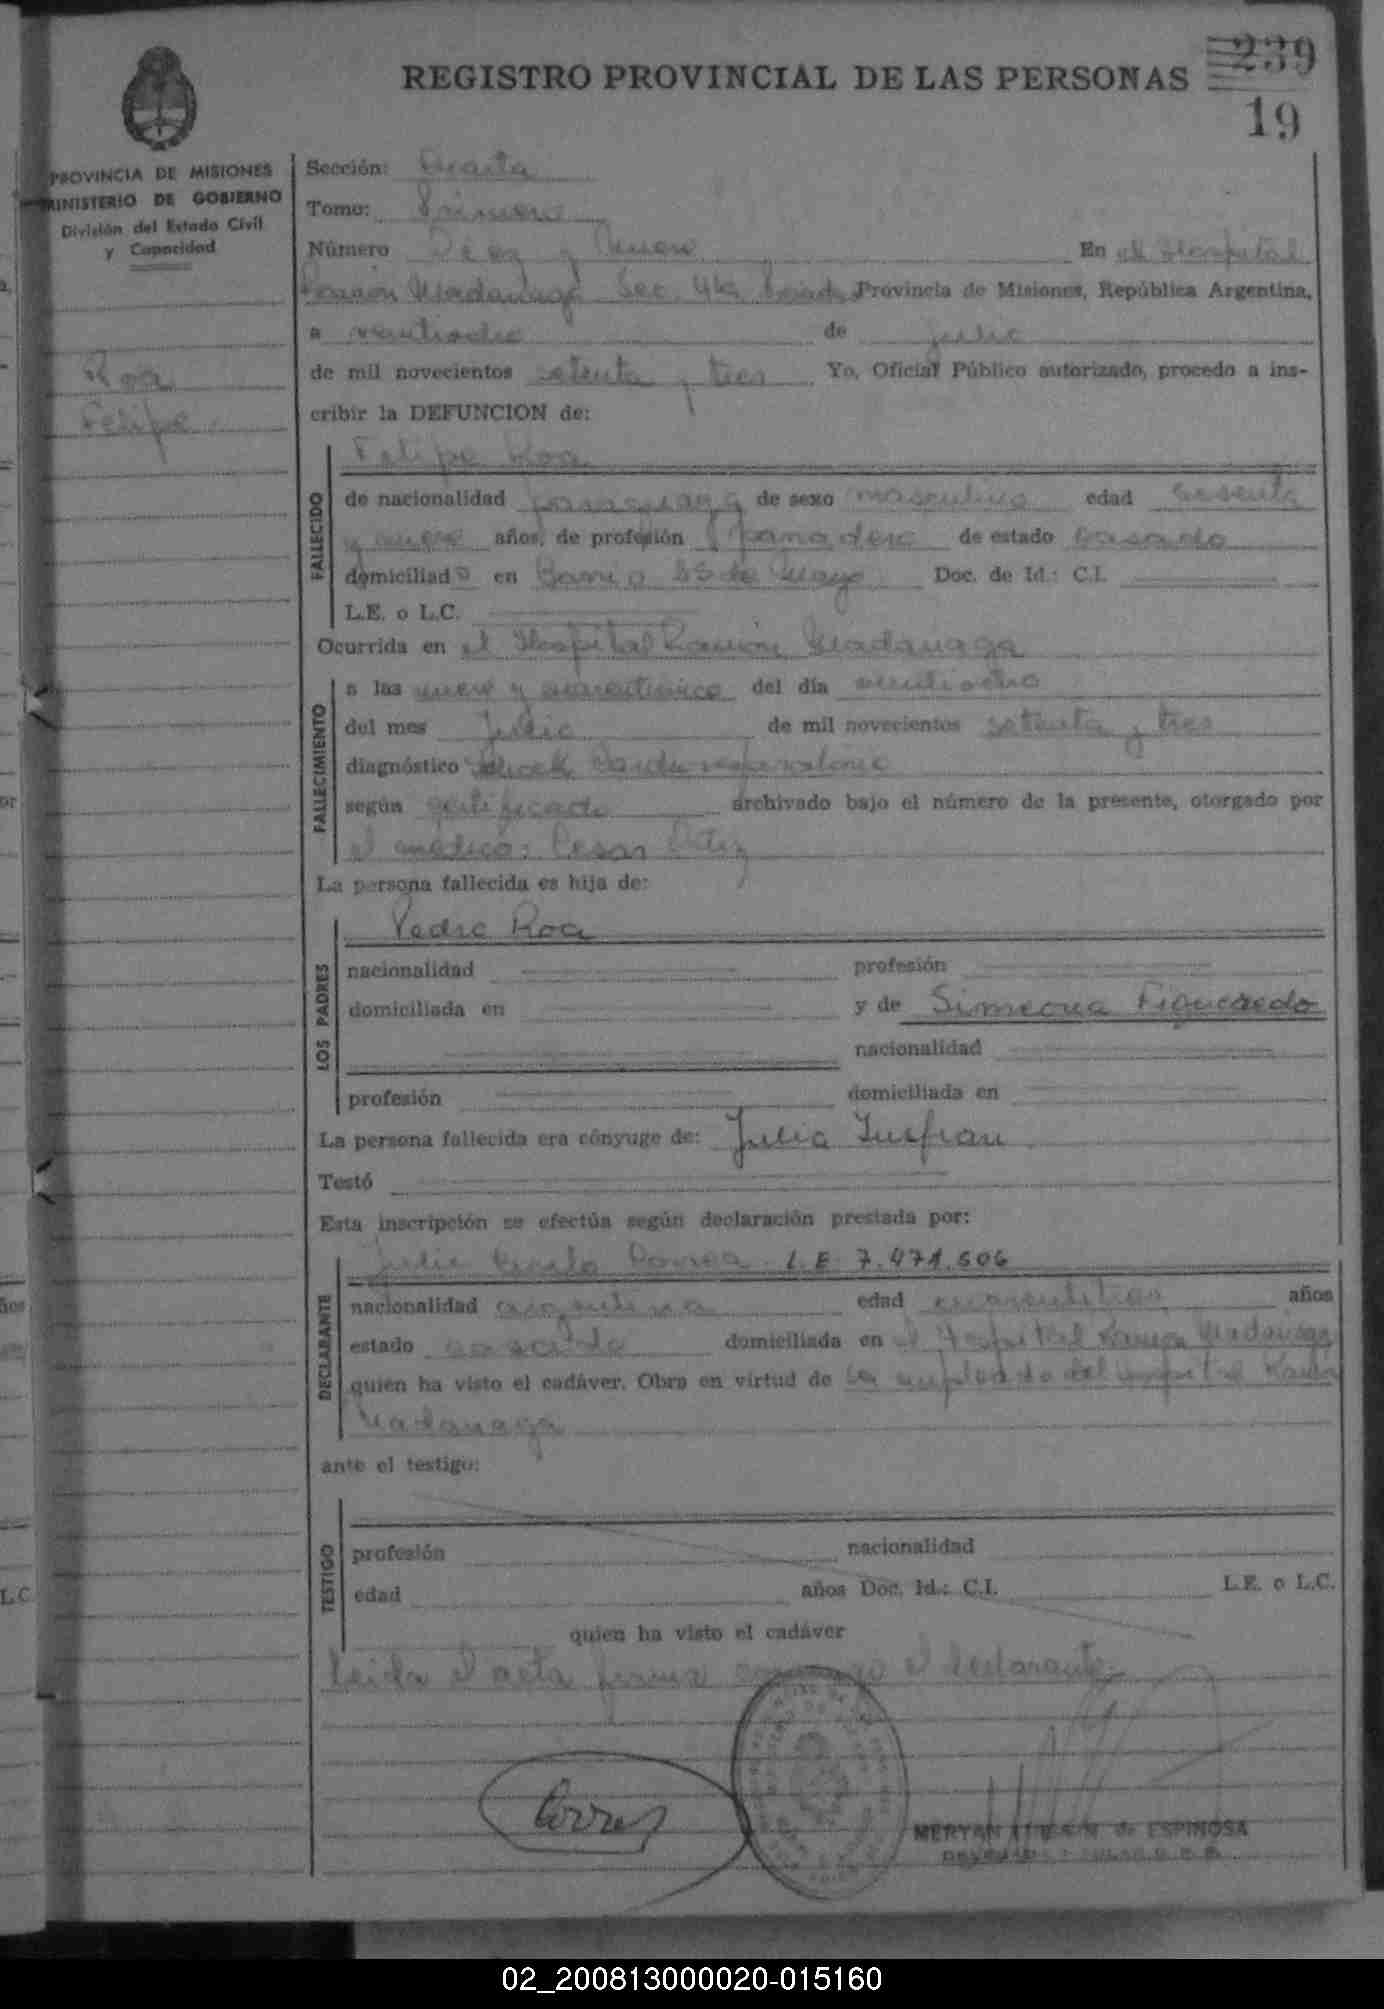 REGISTRO PROVINCIAL DE LAS PERSONAS
239
19
PROVINCIA DE MISIONES
MINISTERIO DE GOBIERNO
División del Estado Civil
y Capacidad
Roa
Felipe
Sección: Cuarta
Tomo: Primero
Número Diez y Nueve En el Hospital
Ramón Madariaga Sec. 4ta Posadas Provincia de Misiones, República Argentina,
a veintiocho de julio
de mil novecientos setenta y tres Yo, Oficial Público autorizado, procedo a ins-
cribir la DEFUNCION de:
FALLECIDO
Felipe Roa
de nacionalidad paraguaya de sexo masculino edad sesenta
y nueve años, de profesión panadero de estado casado
domiciliado en Barrio 25 de Mayo Doc. de Id.: C.I.
L.E. o L.C.
Ocurrida en el Hospital Ramón Madariaga
FALLECIMIENTO
a las nueve y del día veintiocho
del mes Julio de mil novecientos setenta y tres
diagnóstico Shock Cardiorespiratorio
según certificado archivado bajo el número de la presente, otorgado por
el médico: Cesar
La persona fallecida es hija de:
LOS PADRES
Pedro Roa
nacionalidad profesión
domiciliada en y de Simeona Figueredo
nacionalidad
profesión domiciliada en
La persona fallecida era cónyuge de: Julia Insfran
Testó
Esta inscripción se efectúa según declaración prestada por:
DECLARANTE
Julio Correa L.E. 7.471.506
nacionalidad argentina edad años
estado casado domiciliada en el Hospital Ramón Madariaga
quien ha visto el cadáver. Obra en virtud de ser empleado del Hospital Ramón
Madariaga
ante el testigo:
TESTIGO
profesión nacionalidad
edad años Doc. Id.: C.I. L.E. o L.C.
quien ha visto el cadáver
Leida el acta firma conmigo el declarante
MERYAN de ESPINOSA
02_200813000020-015160